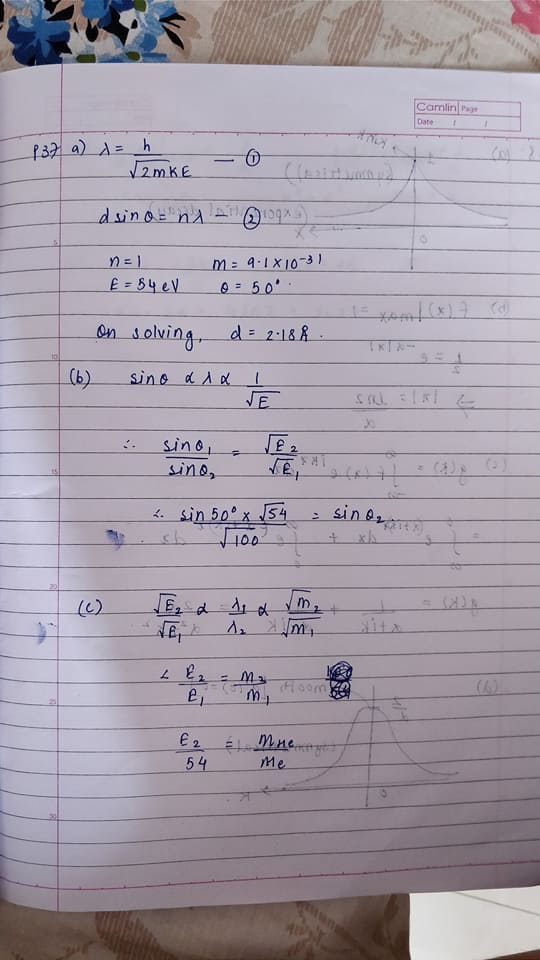 Camlin Page
Date / /
P37 a) λ = h / √2mKE — ①
d sinθ = nλ — ②
n = 1 m = 9.1 × 10⁻³¹
E = 54 eV θ = 50°.
On solving, d = 2.18 Å.
(b) sinθ ∝ λ ∝ 1 / √E
∴ sinθ₁ / sinθ₂ = √E₂ / √E₁
∴ sin50° × √54 / √100 = sinθ₂
(c) √E₂ / √E₁ ∝ λ₁ / λ₂ ∝ √m₂ / √m₁
∴ E₂ / E₁ = m₂ / m₁
E₂ / 54 = mHe / me
5
10
15
20
25
30